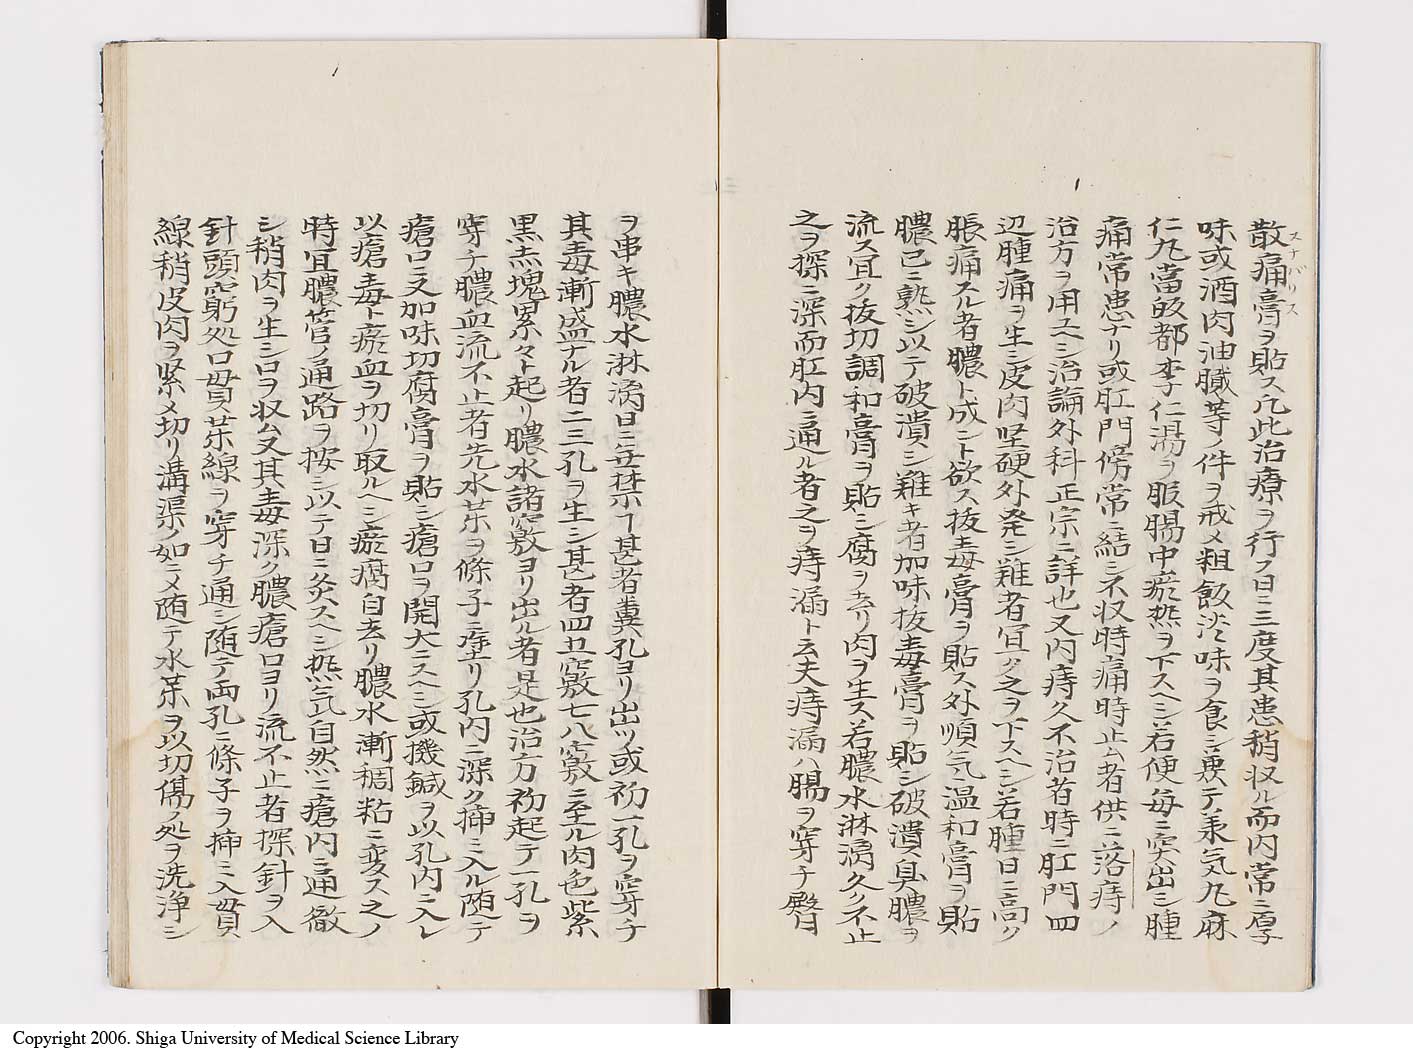 散痛膏ヲ貼ス凡此治療ヲ行フ日ニ三度其患稍収ル而内常ニ厚
スナバリス
味或酒肉油膩等ノ件ヲ戒メ粗飯淡味ヲ食シ兼テ乗気丸麻
仁丸當皈郁李仁湯ヲ服腸中瘀熱ヲ下スヘシ若便毎ニ突出シ腫
痛常患ナリ或肛門傍常ニ結シ不収時痛時止ム者供ニ落痔ノ
治方ヲ用ユヘシ治論外科正宗ニ詳也又内痔久不治者時ニ肛門四
辺腫痛ヲ生シ皮肉坚硬外発シ難者宜ク之ヲ下スヘシ若腫日ニ高ク
脹痛スル者膿ト成ント欲ス抜毒膏ヲ貼ス外順気温和膏ヲ貼
膿已ニ熟シ以テ破潰シ難キ者加味抜毒膏ヲ貼シ破潰具膿ヲ
流ス宜ク抜切調和膏ヲ貼シ腐ヲ去リ肉ヲ生ス若膿水淋漓久ク不止
之ヲ探ニ深而肛内ニ通ル者之ヲ痔漏ト云夫痔漏ハ腸ヲ穿チ臀
ヲ串キ膿水淋漓日ニ無禁コ甚者糞孔ヨリ出ツ或初一孔ヲ穿チ
其毒漸盛ナル者二三孔ヲ生シ甚者四五竅七八竅ニ至ル肉色紫
黒赤塊累々ト起リ膿水諸竅ヨリ出ル者是也治方初起テ一孔ヲ
穿チ膿血流不止者先水茶ヲ條子ニ塗リ孔内ニ深ク挿ミ入ル随テ
瘡口ニ又加味切腐膏ヲ貼シ瘡口ヲ開大ニスヘシ或機鍼ヲ以孔内ニ入レ
以瘡毒ト瘀血ヲ切リ取ルヘシ瘀腐自去リ膿水漸稠粘ニ変ス之ノ
時宜膿管ノ通路ヲ按シ以テ日ニ灸スヘシ熱気自然ニ瘡内ニ通徹
シ稍肉ヲ生シ口ヲ収ム又其毒深ク膿瘡口ヨリ流不止者探針ヲ入
針頭窮処口貫茶線ヲ穿チ通シ随テ両孔ニ條子ヲ挿ミ入貫
線稍皮肉ヲ緊メ切リ溝渠ノ如ニメ随テ水茶ヲ以切傷ノ処ヲ洗浄シ
Copyright 2006. Shiga University of Medical Science Library